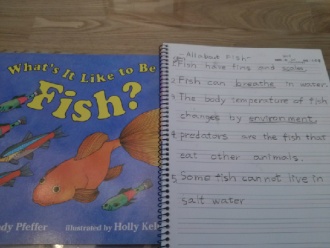 What's It Like to Be
Fish?
dy Pfeffer
Illustrated by Holly Kel
All about Fish
1. Fish have fins and scales.
2. Fish can breathe in water.
3. The body temperature of fish
changes by environment.
4. predators are the fish that
eat other animals.
5. Some fish cannot live in
salt water